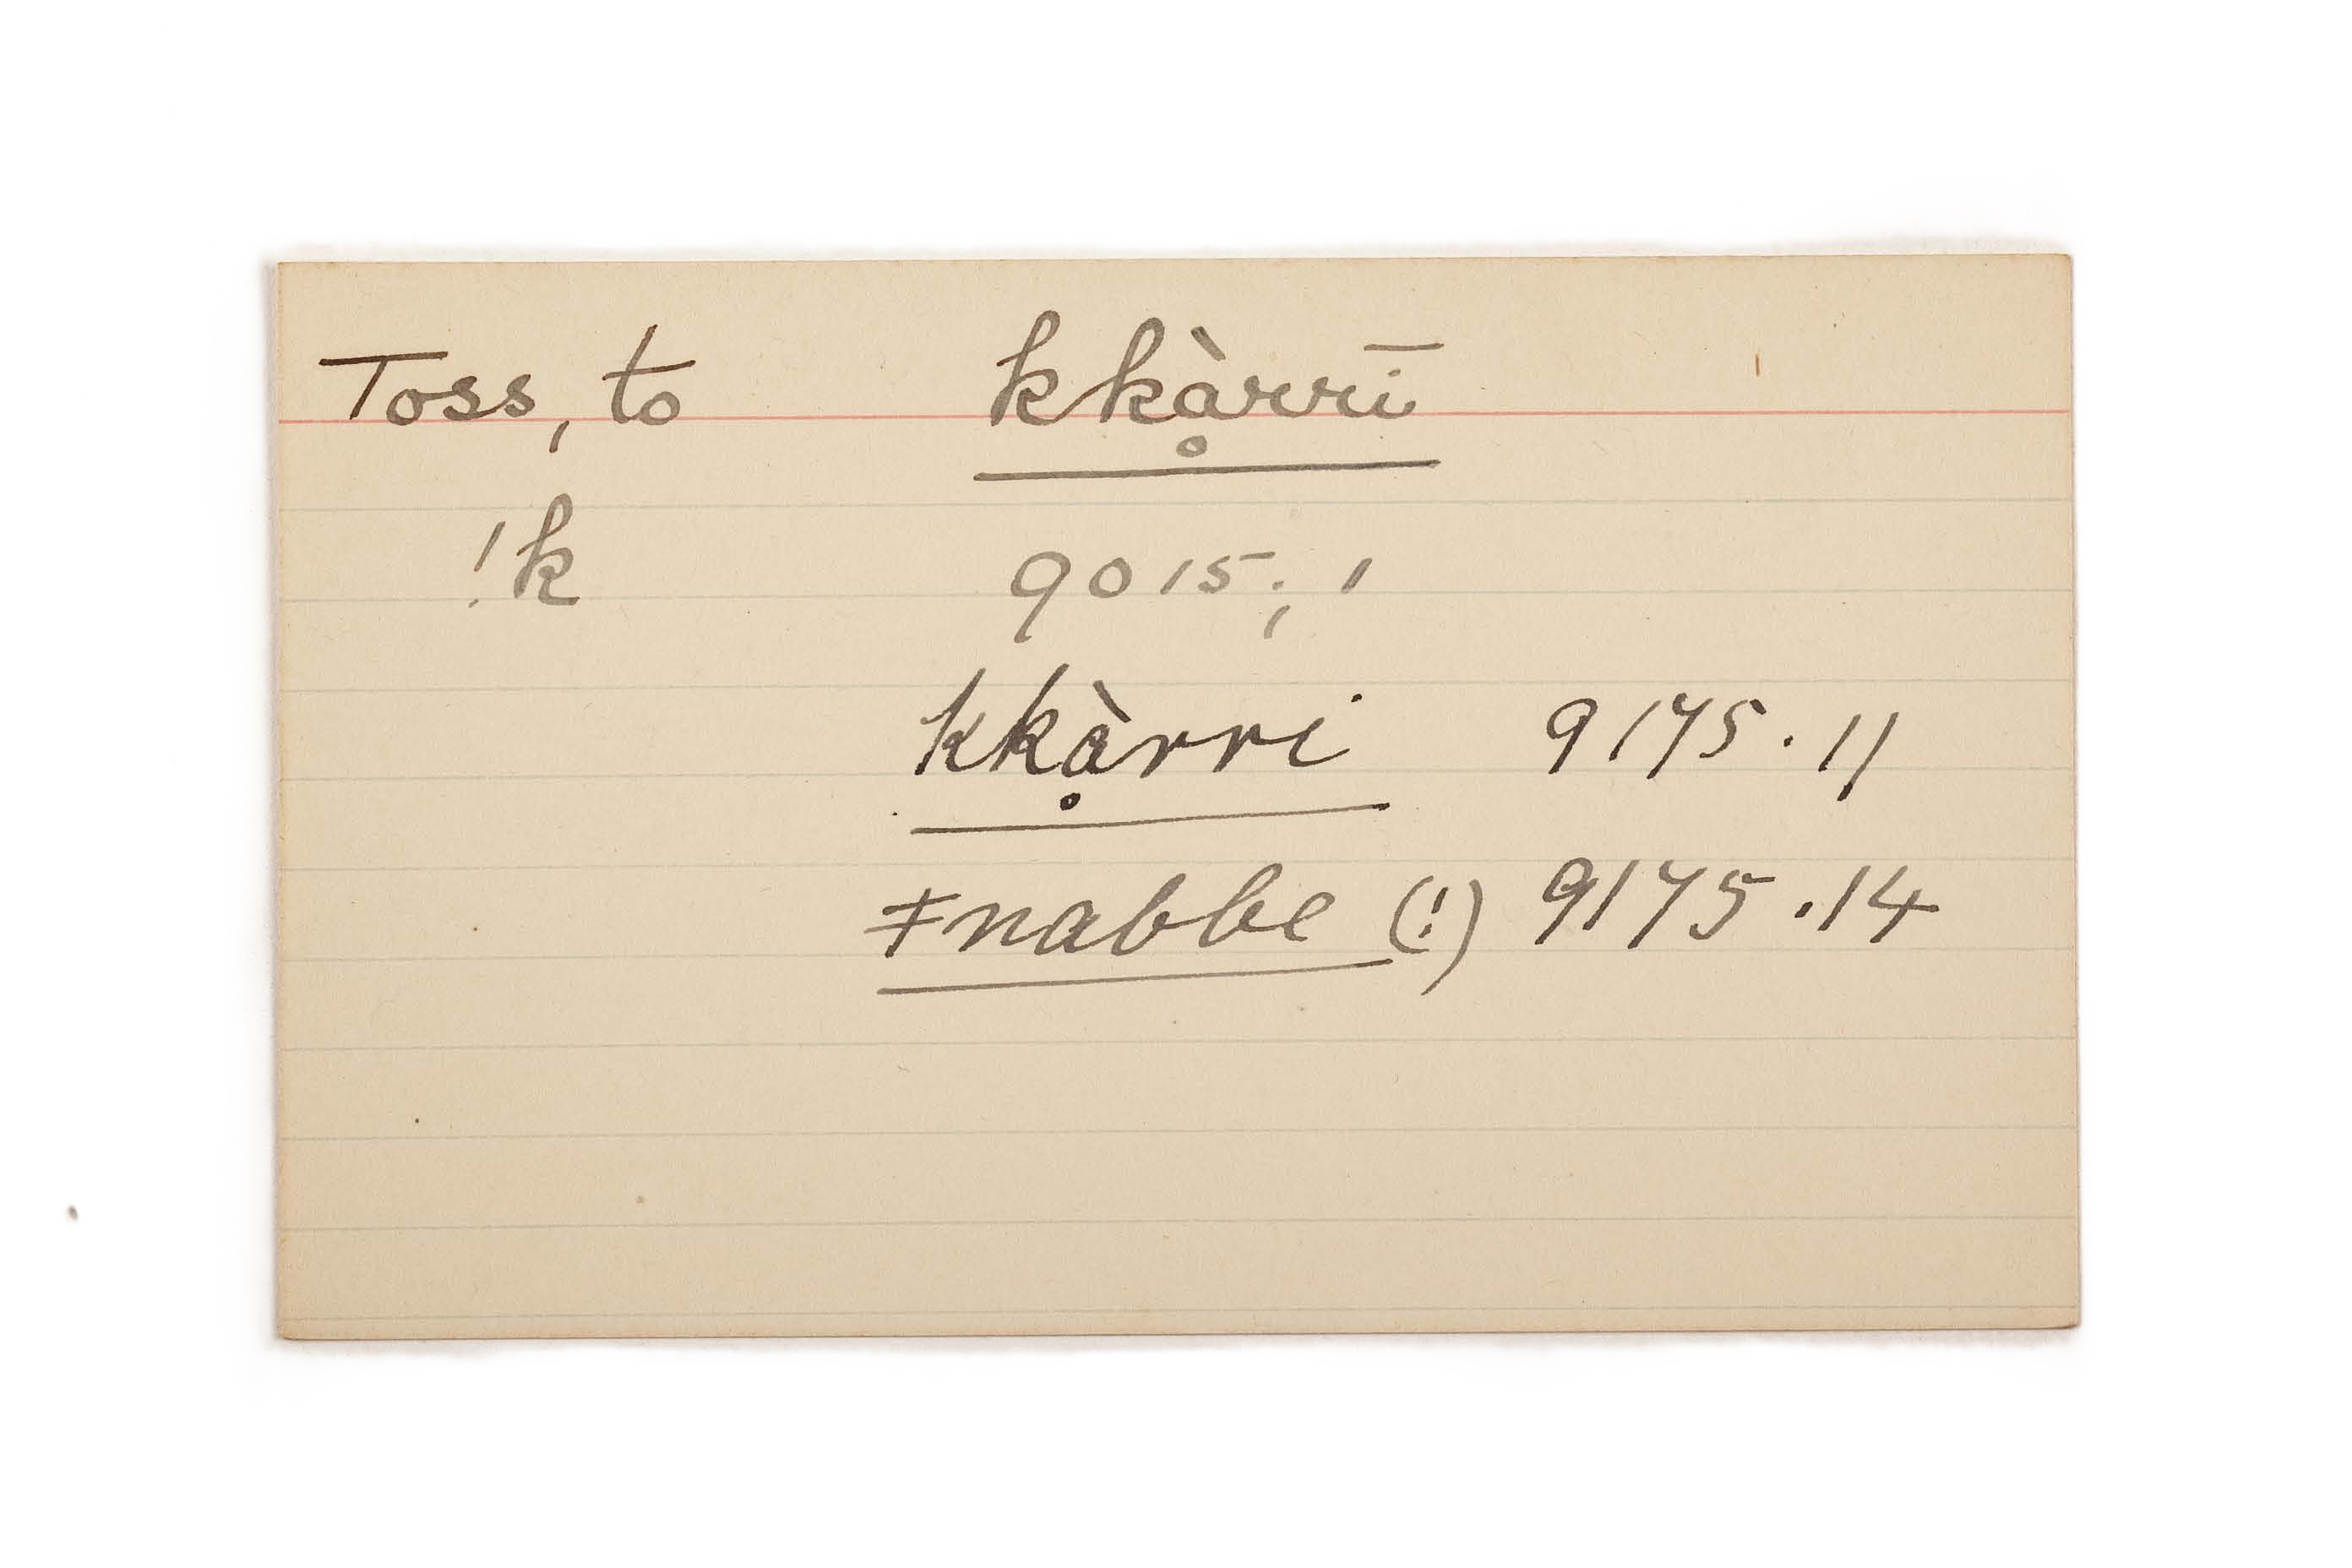 Toss, to kkḁ̆̀rrī
!k 9015; 1
kkḁ̀rri 9175.11
ǂnabbe (!) 9175.14